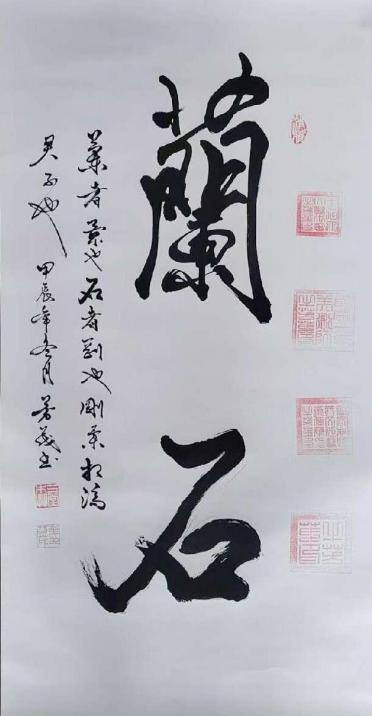 蘭石
蘭者柔也石者剛也剛柔相濟
君子也 甲辰年冬月 書